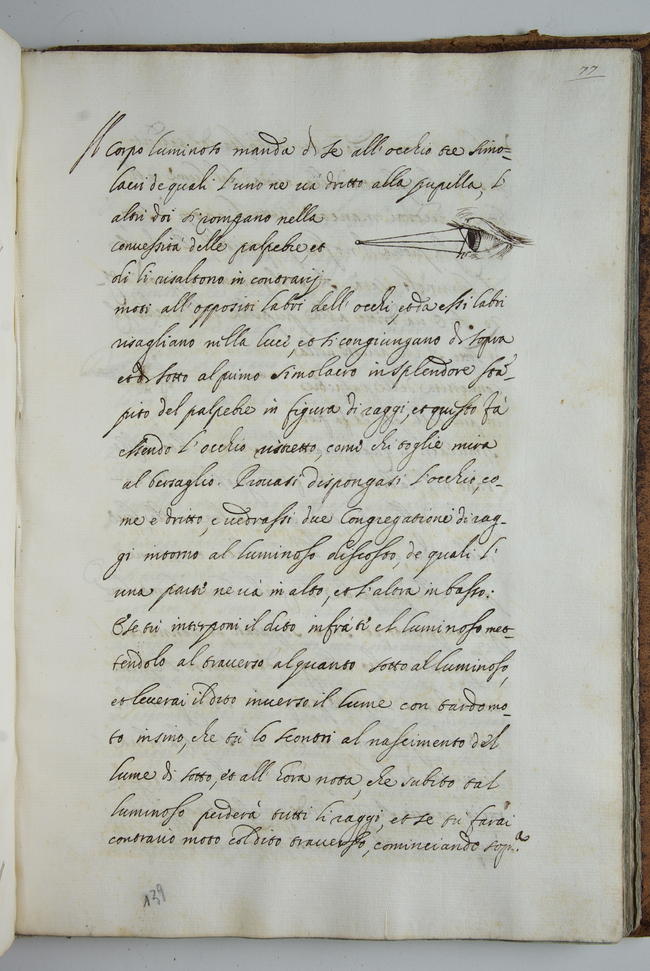 77
Il corpo luminoso manda di se all'occhio tre simo=
lacri de quali l'uno ne và dritto alla pupilla, l'
altri doi si rompano nella
convessità delle palpebre, et
di li risaltono in contrarij
moti all'oppositi labri dell'occhi, et da essi labri
risagliano nella luce, et si congiungano di sopra
et di sotto al primo simolacro in splendore
del palpebre in figura di raggi, et questo fà
essendo l'occhio ristretto, come chi toglie mira
al bersaglio. Provasi dispongasi l'occhio, co-
me è dritto, e vedrassi due Congregatione di rag-
gi intorno al luminoso discosto, de quali l'
una parte ne và in alto, et l'altra in basso:
E se tu interponi il dito infra te el luminoso met-
tendolo al traverso alquanto sotto al luminoso,
et leverai il dito inverso il lume con tardo mo-
to insino, che tu lo scontri al nascimento del
lume di sotto, et all'hora nota, che subito tal
luminoso perderà tutti li raggi, et se tu farai
contrario moto col dito traverso, cominciando sop.a
139